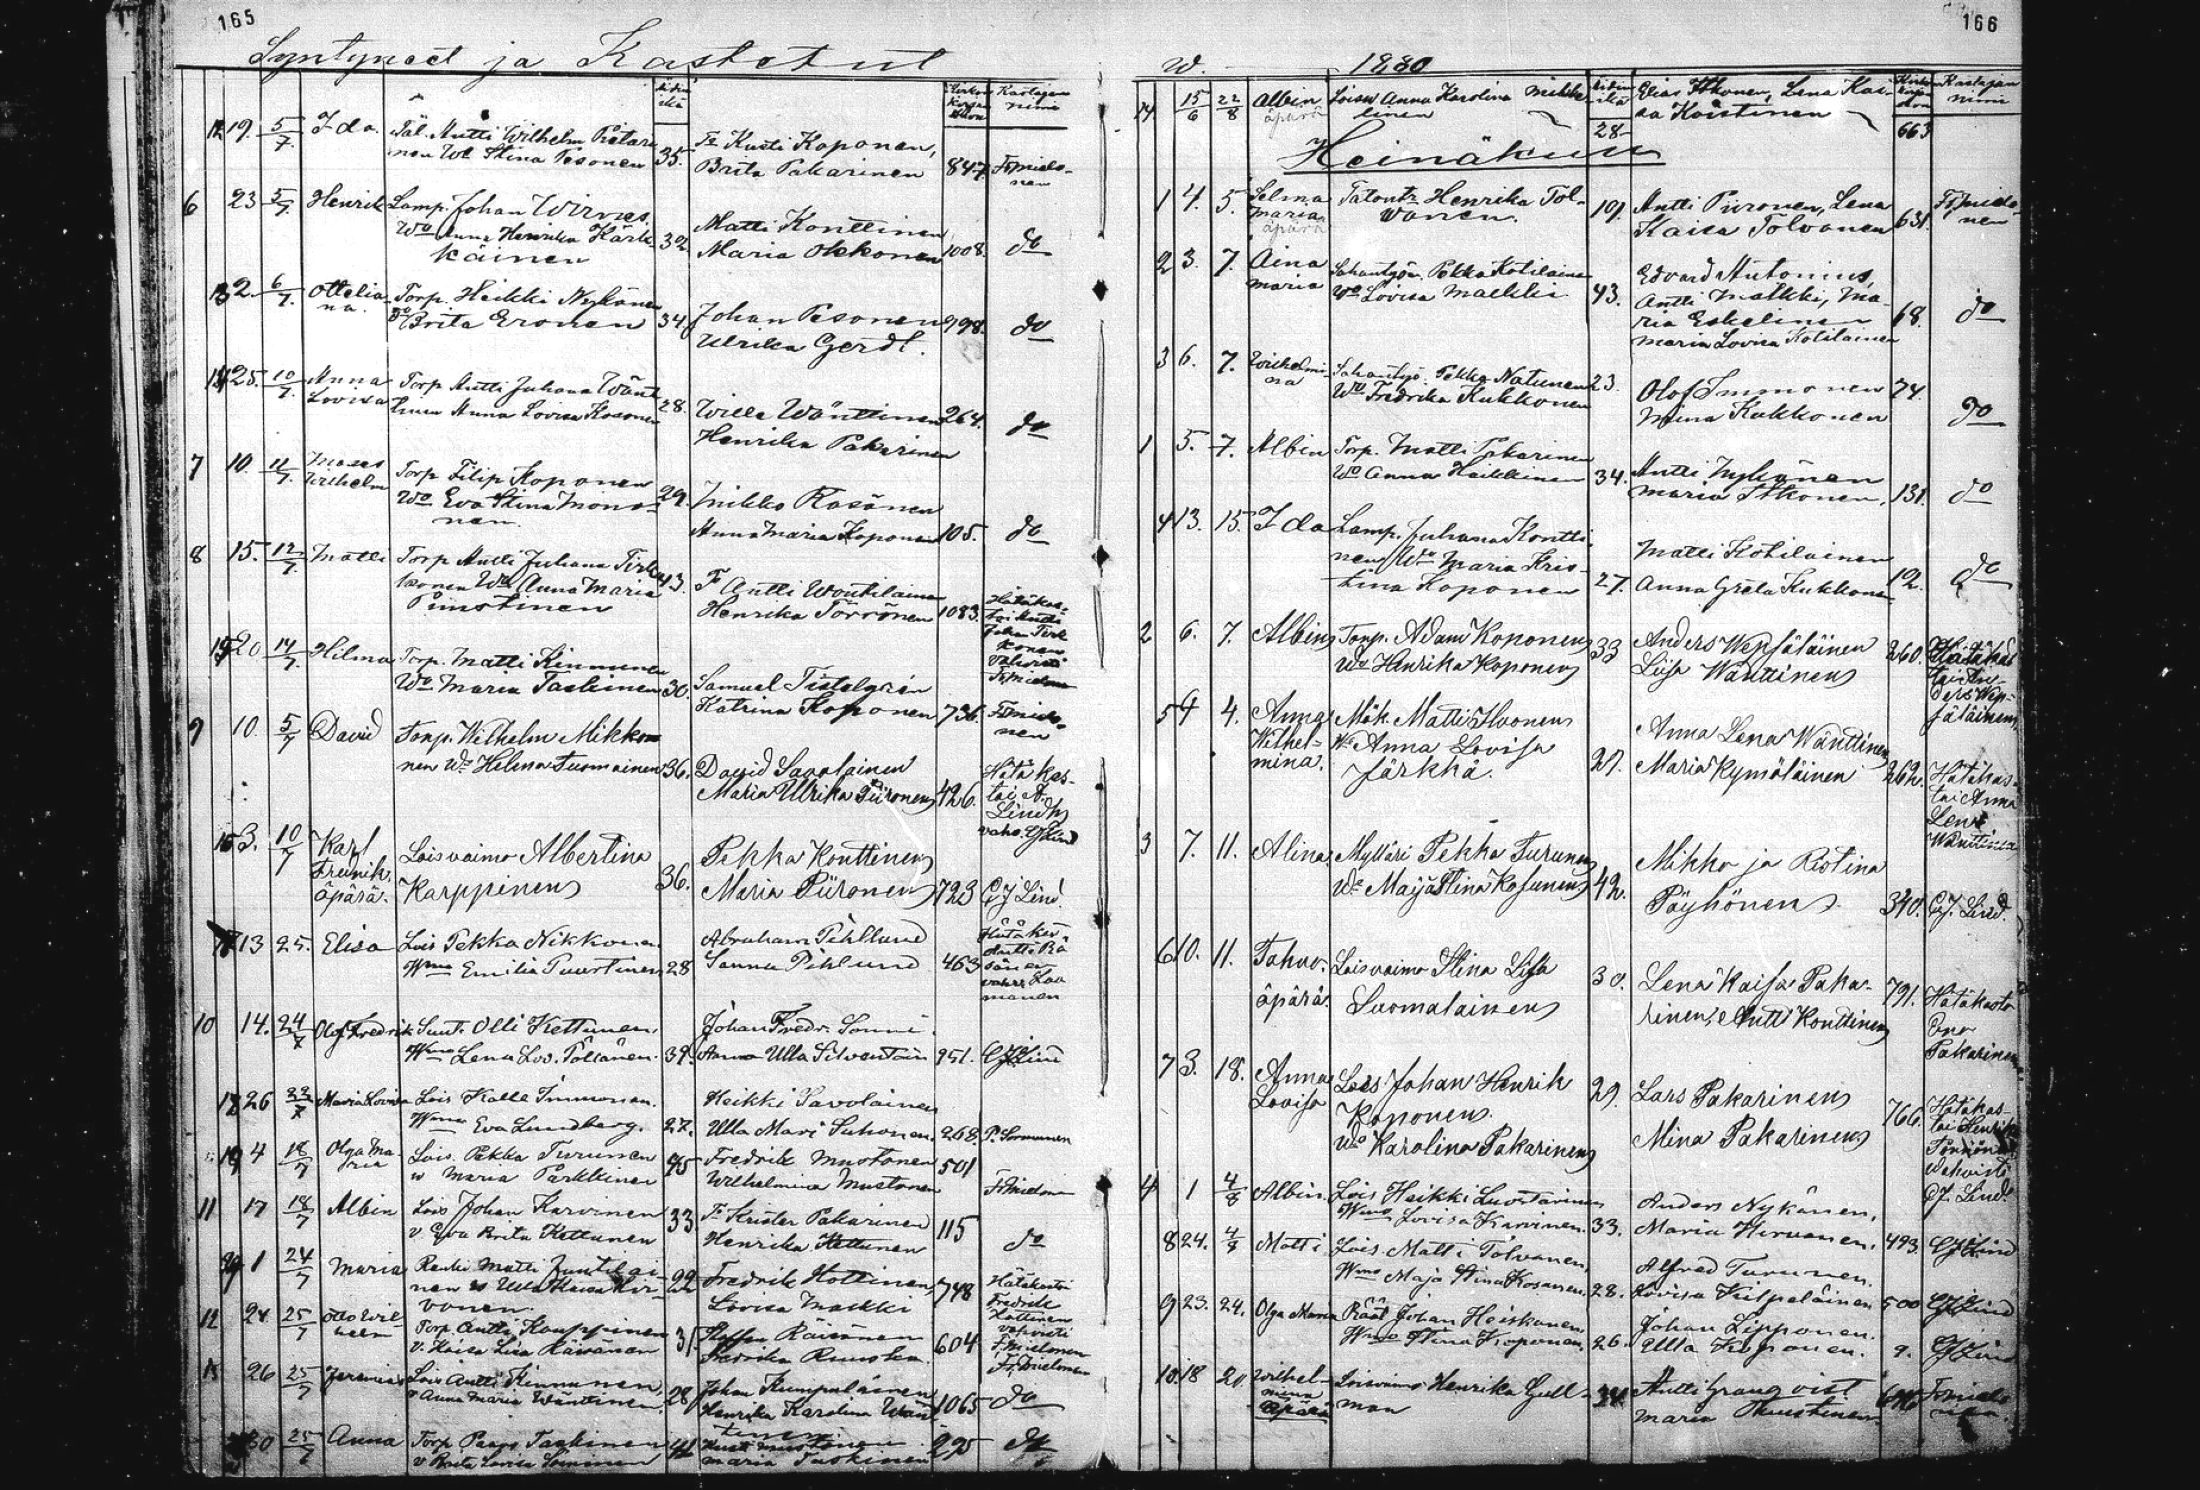 165
Syntyneet ja Kastetut
Äidin ikä
Kastajan nimi
12 19. 5/7 Ida. Tal. Antti Wilhelm Pitära
nen Wo Stina Pesonen 35. Kusti Koponen,
Brita Pakarinen 847.
6 23 5/7. Henrik Lamp. Johan Wirmes.
Wo Anna Henrika Kärk
käinen 32. Matti Konttinen
Maria Okkonen 1008. do
13 2. 6/7. Otteliana. Torp. Heikki Nykänen
Wo Brita Eronen 34. Johan Pesonen
Ulrika Gerdt. 998. do
14 25. 10/7. Anna
Lovisa Torp Antti Juhana Wänt
tinen Anna Lovisa Kosonen 28. Wille Wänttinen
Henrika Pakarinen 264. do
7 10. 11/7. Moses
Wilhelm Torp Filip Koponen
Wo Eva Stina Mono-
nen. 29. Mikko Räsänen
Anna Maria Koponen 105. do
8 15. 12/7. Matti Torp Antti Juhana Tirk
konen Wo Anna Maria
Pimotinen 43. Antti Woutilainen
Henrika Törrönen 1083. Hätäkas-
toi Antti
Johan Tirk
konen
Vahvisti
20 14/7. Hilma Torp. Matti Kinnunen
Wo Maria Taskinen 30. Samuel
Katrina Koponen 736.
9 10. 5/7 David Torp. Wilhelm Mikko
nen Wo Helena Tuomainen 36. David Savolainen
Maria Ulrika Piironen 426. Hätäkas-
toi A.
Lindh
vahv. CJ Lind
3. 10/7 Karl
Fredrik.
äpärä. Loisvaimo Albertina
Karppinen 36. Pekka Konttinen
Maria Piironen 723 CJ Lind.
13 25. Elisa Lois Pekka Nikkonen
Wmo Emilia Puurtinen 28 Abraham Pihllund
Sanna Pihlund 463
10 14. 24/7 Olof Fredrik Suut. Olli Kettunen.
Wmo Lena Lov. Pölzänen. 39. Johan Fredr. Sonni.
Anna Ulla Silventoin 951. CJ Lind
26 22/7 Maria Lovisa Lois Kalle Immonen.
Wmo Eva Lundberg. 27. Heikki Savolainen
Ulla Mari Suhonen. 268. P. Sormunen
4 18/7 Olga Ma-
ria Lois. Pekka Turunen
w Maria Parkkinen 45 Fredrik Mustonen
Wilhelmina Mustonen 501
11 17 18/7 Albin Lois Johan Karvinen
v Eva Brita Kettunen 33 Krister Pakarinen
Henrika Kettunen 115 do
1 24/7 Maria Renki Matti Juntilai-
nen w Ulla Kaisa Hir-
vonen. 22 Fredrik Hottinen
Lovisa Malkki 748 Hätäkasti
Fredrik
Hottinen
vahvisti
12 24. 25/7 Otto Wil-
helm Torp. Antti Kauppinen
v. Kaisa Lisa Räisänen 31. Räisänen
Fredrika Ruuska 604
26 25/7 Jeremias Lois Antti Kinnunen.
v Anna Maria Wänttinen. 28. Johan Kumpulainen
Henrika Karolina Wänt
tinen. 1065 do
30 25/7 Anna Torp Paavo Taskinen
v Brita Lovisa 41 Kusti Mustonen
Maria Taskinen 295 do
166
w. 1880
Kastajan
nimi
14 15/6 22/8 Albin
äpärä Loisw Anna Karolina Mikke
linen 28 Elias Itkonen, Lena Kai-
sa Koistinen 663
Heinäkuu
1 4. 5. Selma
Maria
äpärä Henrika Tol-
vanen. 19. Antti Piironen, Lena
Kaisa Tolvanen 631.
2 3. 7. Aina
Maria Sahantyön. Pekka Kotilainen
Wo Lovisa Malkki 43. Edvard Antonius,
Antti Malkki, Ma-
ria Eskelinen
Maria Lovisa Kotilainen 68. do
3 6. 7. Wilhelmi-
na Sahantyö. Pekka Natunen
Wo Fredrika Kukkonen 23. Olof Immonen
Mina Kukkonen 74. do
1 5. 7. Albin Torp. Matti Pakarinen
Wo Anna Heikkinen 34. Antti Nykänen
Maria Itkonen. 131. do
4 13. 15. Ida Lamp. Juhana Kontti-
nen Wo Maria Kris-
tina Koponen 27. Matti Kotilainen
Anna Greta Kukkonen 12. do
2 6. 7. Albin Torp. Adam Koponen
Wo Henrika Koponen 33 Anders Wepsäläinen
Liisa Wänttinen 260. Hätäkas
toi An-
ders Wep-
säläinen
5 4 4. Anna
Wilhel-
mina. Mök Matti Ihonen
Wo Anna Lovisa
Järkkä. 27. Anna Lena Wänttinen
Maria Kymäläinen 262. Hätäkas-
toi Anna
Lena
Wänttinen
3 7. 11. Alina Mylläri Pekka Turunen
Wo Maija Stina Kosunen 42. Mikko ja Ristina
Pöyhönen 340. CJ. Lind.
6 10. 11. Tahvo.
äpärä. Loisvaimo Stina Lisa
Suomalainen 30. Lena Kaisa Paka-
rinen, Antti Konttinen 791. Hätäkasto
Eva
Pakarinen.
7 3. 18. Anna
Lovisa Lois Johan Henrik
Koponen.
Wo Karolina Pakarinen 29. Lars Pakarinen
Mina Pakarinen 766. Hätäkas-
toi Henrik
Törrönen
Vahvisti
CJ. Lind.
4 1 4/8 Albin. Lois Heikki Luostarinen
Wmo Lovisa Karvinen. 33. Anders Nykänen,
Maria Hirvonen. 493. CJ Lind
8 24. 4/8 Matti Lois. Matti Tolvanen.
Wmo Maja Stina Kosanen. 28. Alfred Turunen.
Lovisa Kilpeläinen 500 CJ Lind
9 23. 24. Olga Maria Räät Johan Heiskanen
Wmo Stina Koponen. 26. Johan Lipponen.
Ulla Koponen. 9. CJ Lind
10 18 20. Wilhel-
mina
äpärä Loisvaimo Henrika Gull-
man 34. Antti Granqvist
Maria